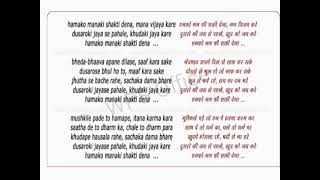 hamako manaki shakti dena, mana vijaya kare
dusaroki jaya se pahale, khudaki jaya kare
hamako manaki shakti dena ...
हमको मन की शक्ति देना, मन विजय करे
दूसरों की जय से पहले, खुद को जय करे
हमको मन की शक्ति देना ...
bheda-bhava apane dilase, saaf kara sake
dusarose bhul ho to, maaf kara sake
jhutha se bache rahe, sachaka dama bhare
dusaroki jayase pahale, khudaki jaya kare
hamako manaki shakti dena ...
भेदभाव अपने दिल से साफ कर सके
दोस्तों से भूल हो तो माफ कर सके
झूठ से बचे रहे, सच का दम भरे
दूसरों की जय से पहले, खुद को जय करे
हमको मन की शक्ति देना ...
mushkile pade to hamape, itana karma kara
saatha de to dharm ka, chale to dharm para
khudape hausala rahe, sachaka dama bhare
dusaroki jayase pahale, khudaki jaya kare
hamako manaki shakti dena ...
मुश्किलें पड़े तो हम पे, इतना कर्म कर
साथ दे तो धर्म का, चले तो धर्म पर
खुद पे हौसला रहे,
दूसरों की जय से पहले, खुद को जय करे
हमको मन की शक्ति देना ...